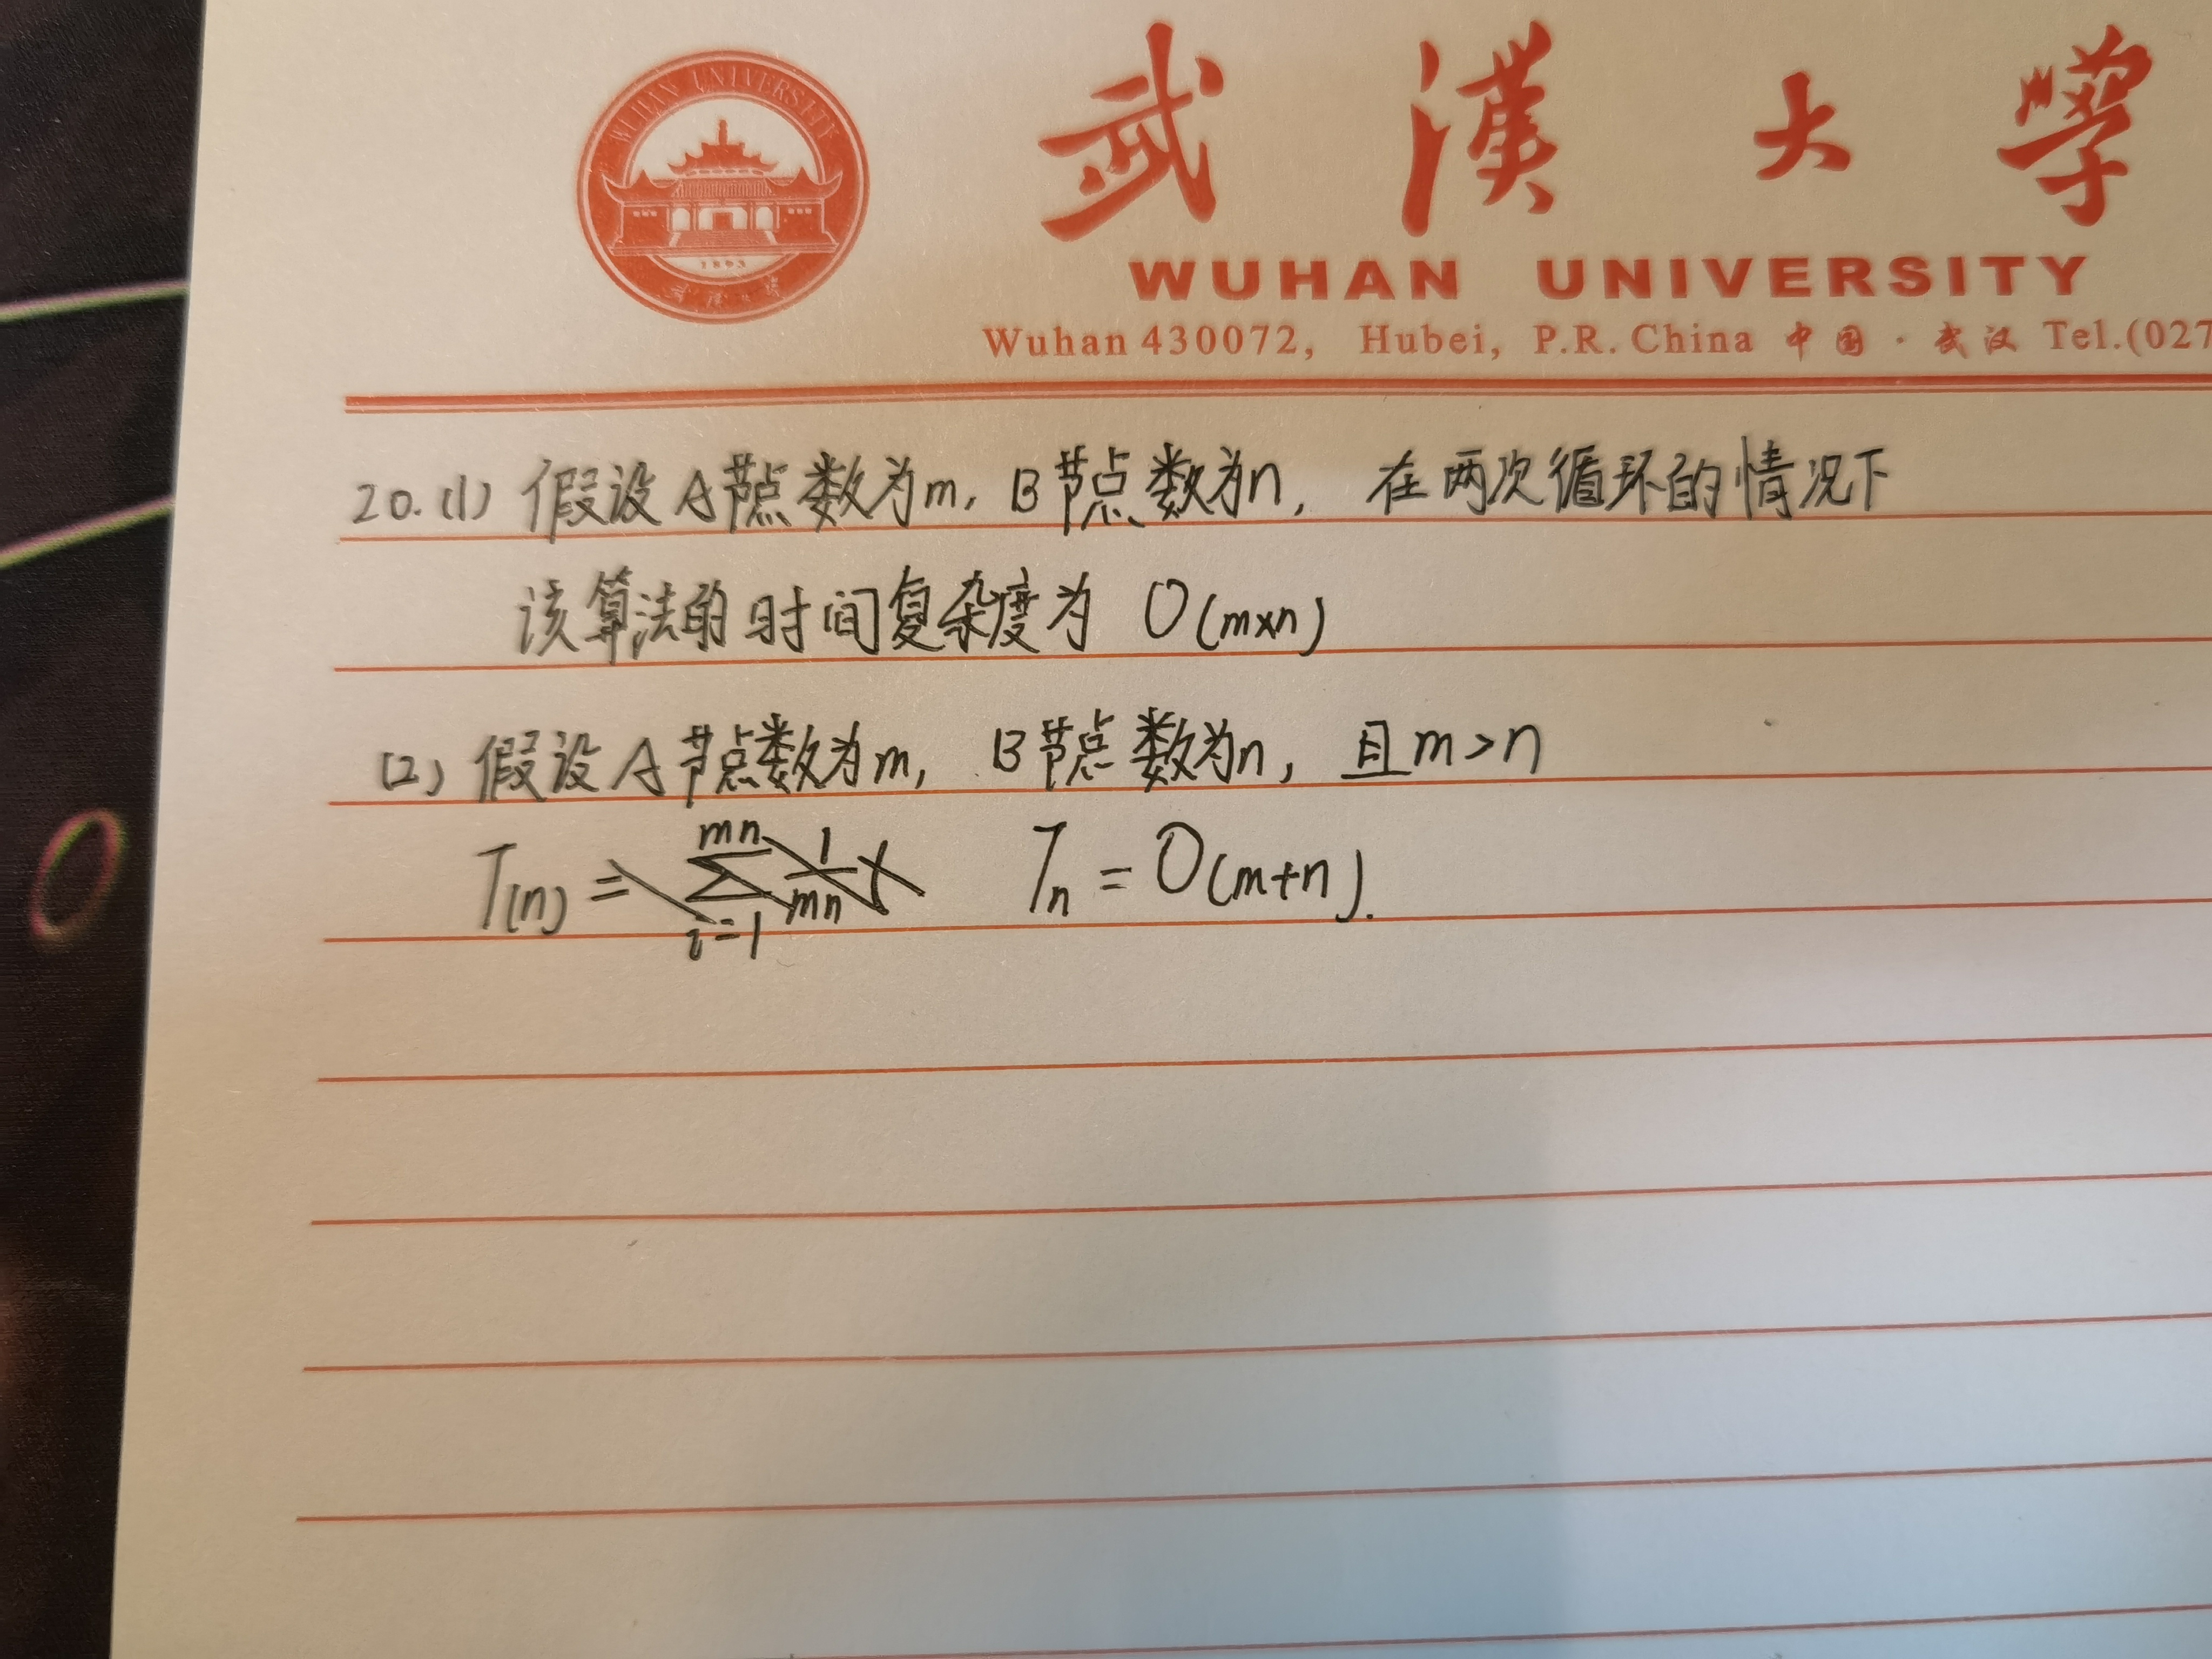 WUHAN UNIVERSITY
1893
武汉大学
武漢大學
WUHAN UNIVERSITY
Wuhan 430072, Hubei, P.R. China 中国·武汉 Tel.(027
20.(1) 假设A节点数为m, B节点数为n, 在两次循环的情况下
该算法的时间复杂度为 O(m×n)
(2) 假设A节点数为m, B节点数为n, 且m>n
T(n) = Σ mn i=1 1/mn Tn = O(m+n).